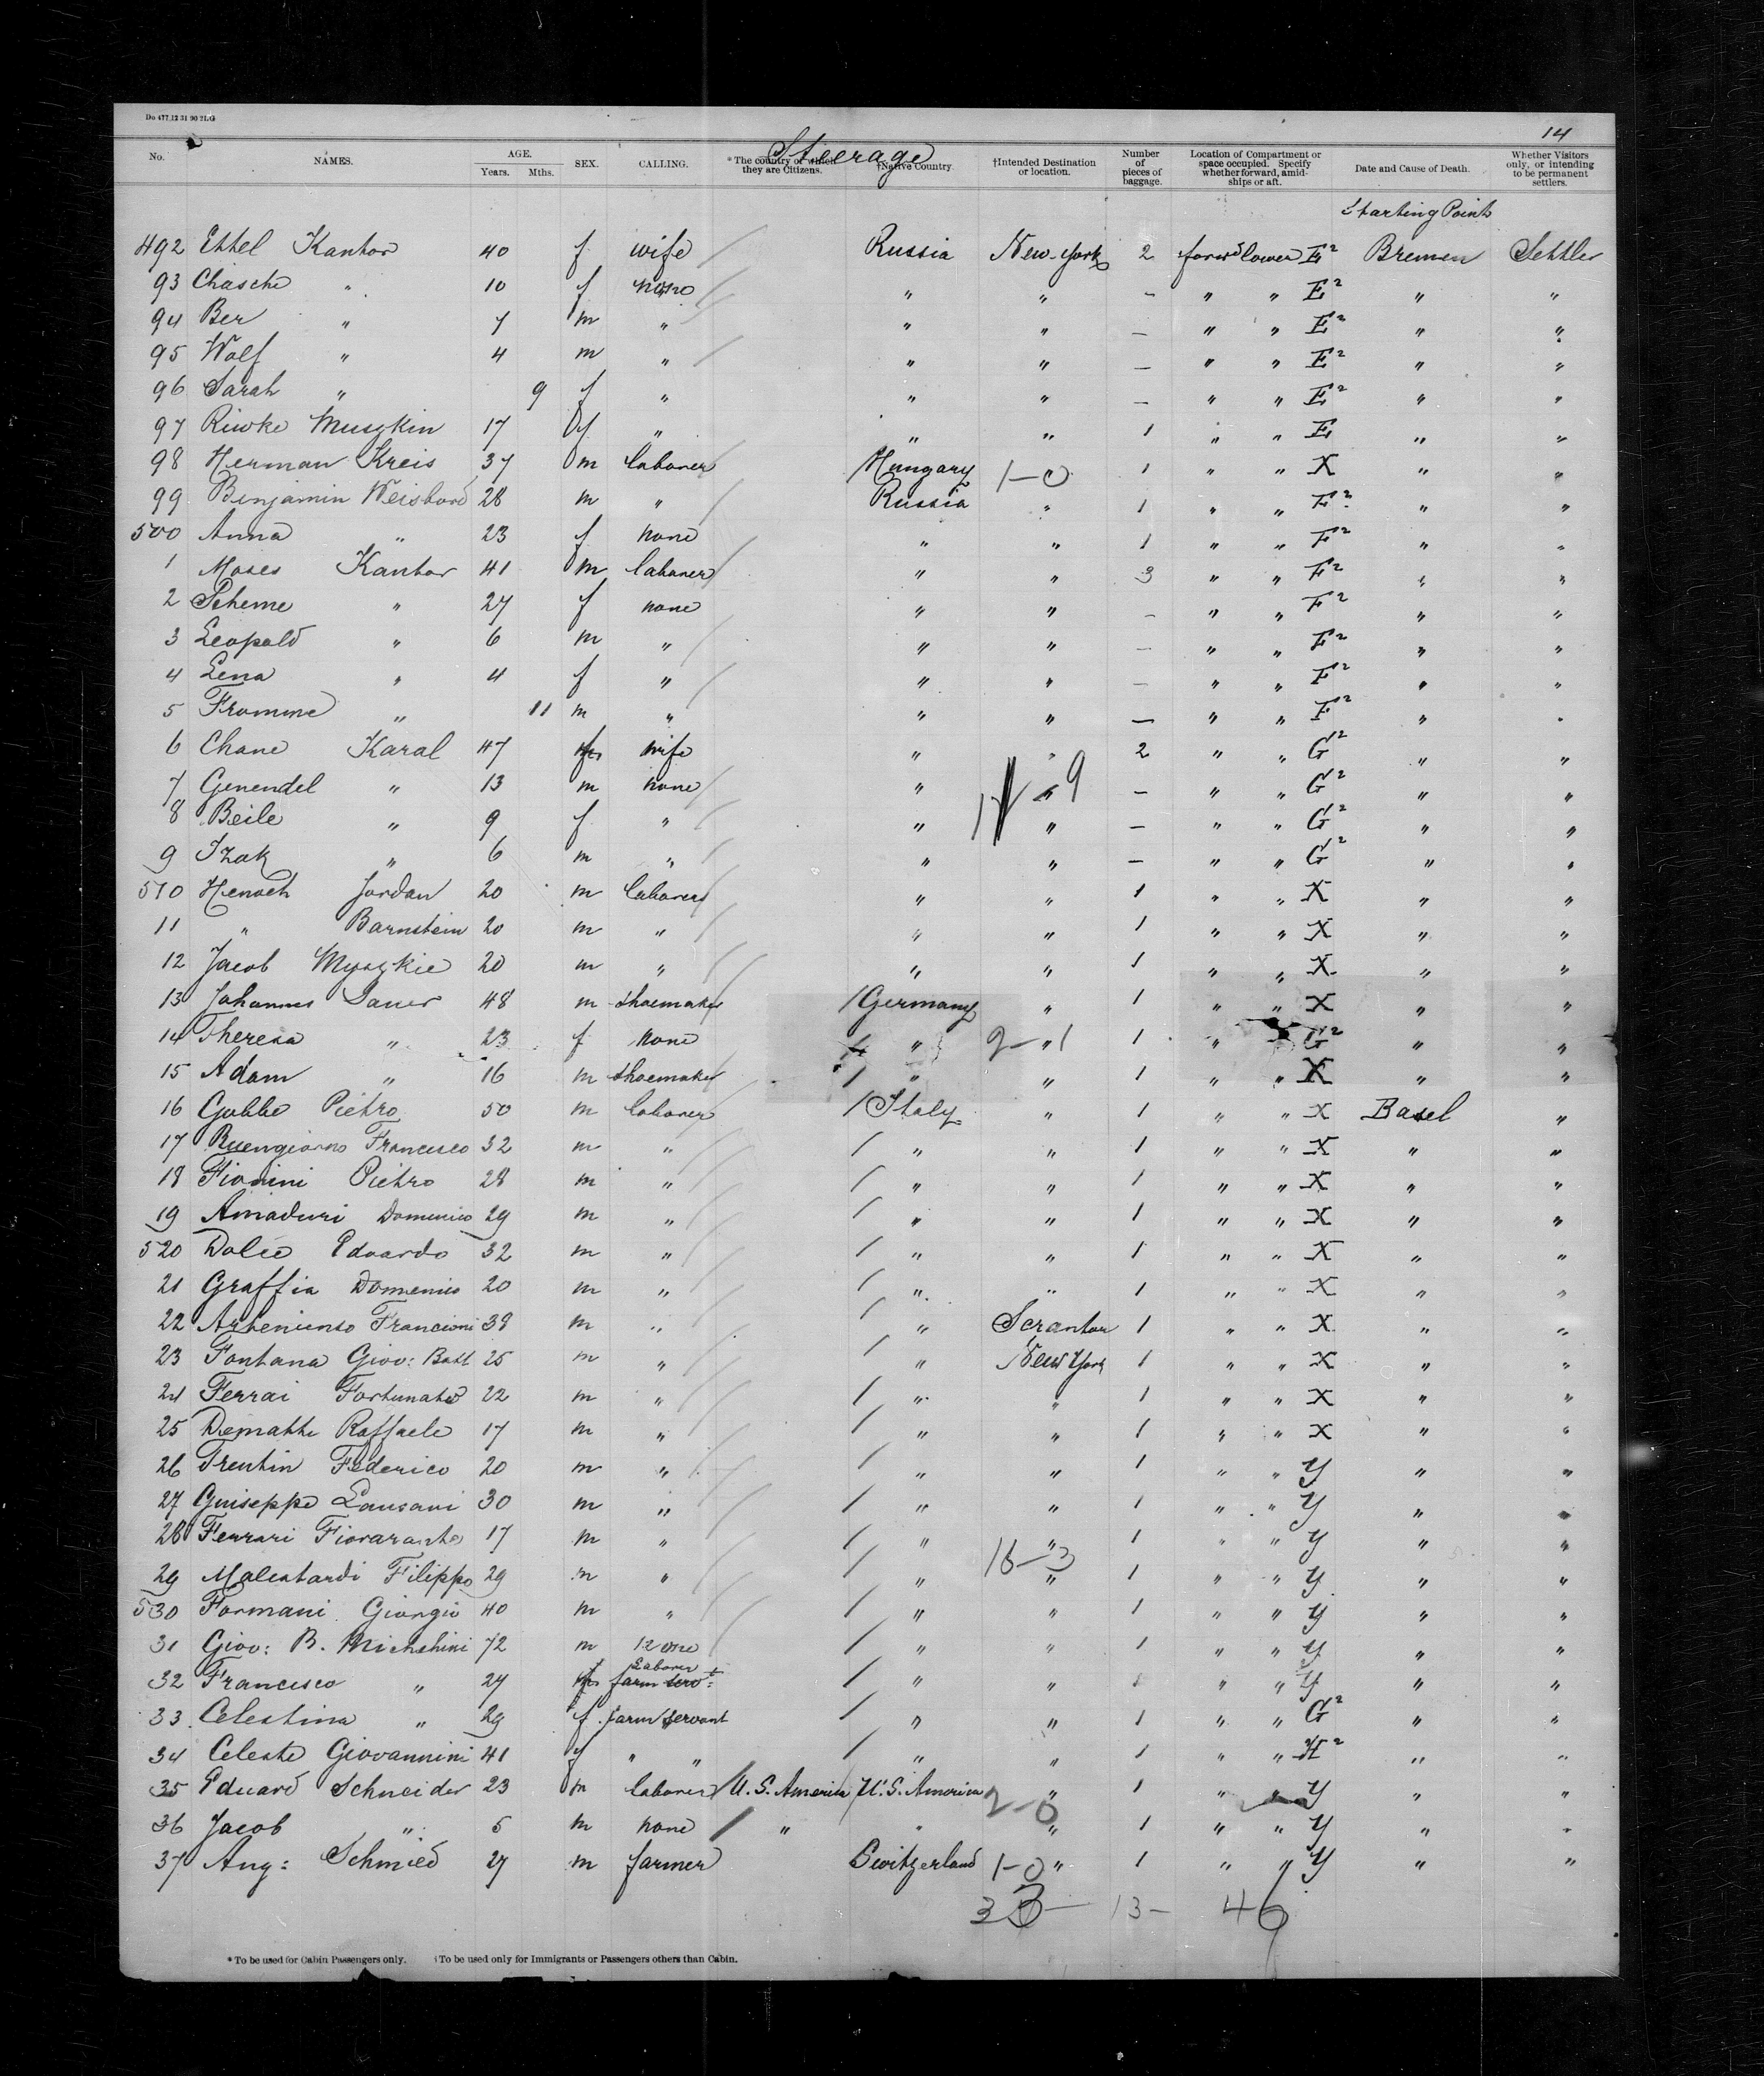 Do 477 12 31 90 2LG
14
Steerage
No. NAMES. AGE. Years. Mths. SEX. CALLING. *The country of which they are Citizens. †Native Country. †Intended Destination or location. Number of pieces of baggage. Location of Compartment or space occupied. Specify whether forward, amidships or aft. Date and Cause of Death. Whether Visitors only, or intending to be permanent settlers.
Starting Point
492 Ettel Kantor 40 f wife Russia New-York 2 forwd lower E² Bremen Settler
93 Chasche " 10 f none " " - " " E² " "
94 Ber " 7 m " " " - " " E² " "
95 Wolf " 4 m " " " - " " E² " "
96 Sarah " 9 f " " " - " " E² " "
97 Riwke Muszkin 17 f " " " 1 " " E " "
98 Herman Kreis 37 m laborer Hungary 1-0 1 " " X " "
99 Benjamin Weisbord 28 m " Russia " 1 " " F² " "
500 Anna " 23 f none " " 1 " " F² " "
1 Moses Kantor 41 m laborer " " 3 " " F² " "
2 Scheme " 27 f none " " - " " F² " "
3 Leopold " 6 m " " " - " " F² " "
4 Lena " 4 f " " " - " " F² " "
5 Fromme " 11 m " " " - " " F² " "
6 Chane Karal 47 wife " " 2 " " G² " "
7 Genendel " 13 m none " " 9 - " " G² " "
8 Beile " 9 f " " " - " " G² " "
9 Izak " 6 m " " " - " " G² " "
510 Henoch Jordan 20 m laborer " " 1 " " X " "
11 " Barnstein 20 m " " " 1 " " X " "
12 Jacob Myszkie 20 m " " " 1 " " X " "
13 Johannes Sauer 48 m shoemaker / Germany " 1 " " X " "
14 Theresa " 23 f none " 2-1 " 1 " " G² " "
15 Adam " 16 m shoemaker / " " 1 " " X " "
16 Gobbo Pietro 50 m laborer / Italy " 1 " " X Basel "
17 Buengiorno Francesco 32 m " / " " 1 " " X " "
18 Fionini Pietro 28 m " / " " 1 " " X " "
19 Amaduri Domenico 29 m " / " " 1 " " X " "
520 Dolce Edoardo 32 m " / " " 1 " " X " "
21 Graffia Domenico 20 m " / " " 1 " " X " "
22 Francioni 38 m " / " Scranton 1 " " X " "
23 Fontana Giov: Batt 25 m " / " New York 1 " " X " "
24 Ferrai Fortunato 22 m " / " " 1 " " X " "
25 Dematte Raffaele 17 m " / " " 1 " " X " "
26 Trentin Federico 20 m " / " " 1 " " Y " "
27 Guiseppe Lansani 30 m " / " " 1 " " Y " "
28 Ferrari Fiorarante 17 m " / " " 1 " " Y " "
29 Malestardi Filippo 29 m " / " 18-3 " 1 " " Y " "
530 Formani Giorgio 40 m " / " " 1 " " Y " "
31 Giov: B. Michelini 72 m none / " " 1 " " Y " "
32 Francesco " 27 Laborer farm servt / " " 1 " " Y " "
33 Celestina " 29 f farm servant / " " 1 " " G² " "
34 Celeste Giovannini 41 f " " / " " 1 " " H² " "
35 Eduard Schneider 23 m laborer U.S. America / U.S. America " 1 " " Y " "
36 Jacob " 5 m none / " " 2-0 " 1 " " Y " "
37 Aug: Schmied 27 m farmer Switzerland 1-0 " 1 " " Y " "
33- 13- 46
* To be used for Cabin Passengers only. †To be used only for Immigrants or Passengers others than Cabin.